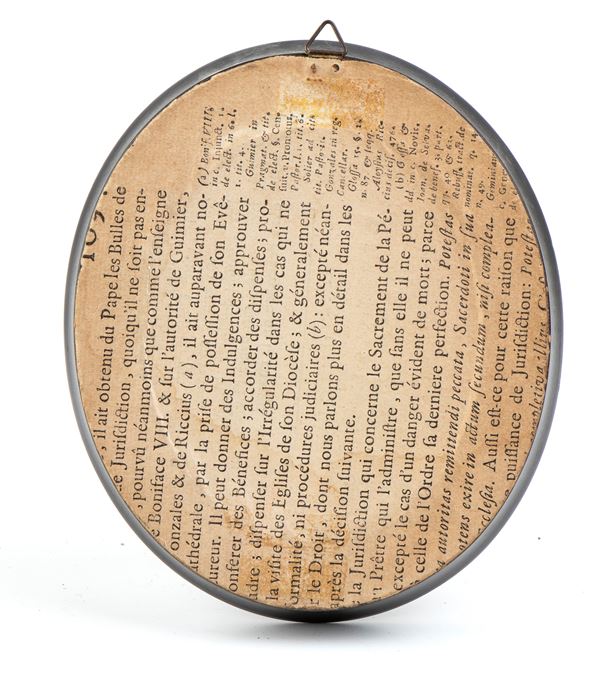 103.
, il ait obtenu du Pape les Bulles de
Juriſdiction, quoiqu'il ne ſoit pas en-
, pourvû néanmoins que comme l'enſeigne
e Boniface VIII. & ſur l'autorité de Guimier,
onzales & de Riccius (a), il ait auparavant no-
thédrale, par la priſe de poſſeſſion de ſon Evê-
ureur. Il peut donner des Indulgences; approuver
onferer des Bénefices; accorder des diſpenſes; pro-
dre; diſpenſer ſur l'Irrégularité dans les cas qui ne
la viſite des Egliſes de ſon Diocèſe; & géneralement
ormalité, ni procédures judiciaires (b): excepté néan-
r le Droit, dont nous parlons plus en détail dans les
après la déciſion ſuivante.
; la Juriſdiction qui concerne le Sacrement de la Pé-
Prêtre qui l'adminiſtre, que ſans elle il ne peut
excepté le cas d'un danger évident de mort; parce
celle de l'Ordre ſa derniere perfection. Poteſtas
autoritas remittendi peccata, Sacerdoti in ſua
gens exire in actum ſecundum, niſi complea-
ccleſia. Auſſi eſt-ce pour cette raiſon que
Puiſſance de Juriſdiction: Poteſtas
mpletiva illius
(a) Bonif. VIII.
in c. Injunct. 1.
de elect. in 6. l.
1. tit. 4.
Guimier in
Pragmat. & tit.
de elect. §. Cen-
ſuit, v. Pronour,
Paſtor, l. 1. tit. 6.
Solier ad cit.
cit. Paſto. 4.
Gonzales in reg.
Cancellar.
Gloſſa 9. §. 1.
n. 8. & ſeqq.
Aloyſius Ric-
cius deciſ.
(b) Geſſo &
dd. in c. Novit.
Joan. de Selva,
de benef. 3. part.
qu. 40. & 62.
Rebuff. tract. de
nominat. q. 14.
n. 49.
Geminian.